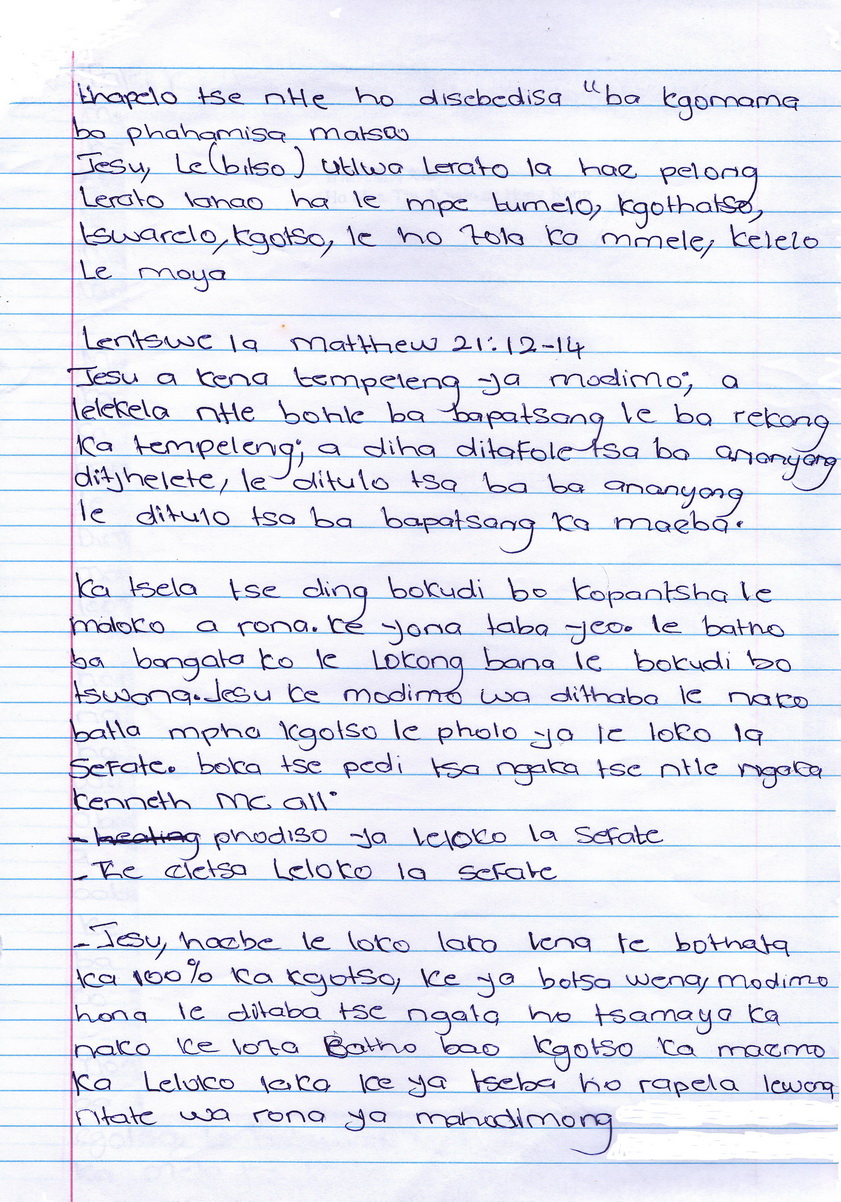 thapelo tse ntle ho disebedisa "ba kgomama
bo phahamisa matsa
Jesu, Le (bitso) utlwa lerato la hae pelong
Lerato lahao ha le mpe tumelo, kgothatso,
tswarelo, kgotso, le ho fola ka mmele, kelelo
Le moya
Lentswe la matthew 21:12-14
Jesu a kena tempeleng ya modimo; a
lelekela ntle bohle ba bapatsang le ba rekang
ka tempeleng; a diha ditafole tsa ba ananyang
ditjhelete, le ditulo tsa ba ba ananyang
le ditulo tsa ba bapatsang ka maeba.
Ka tsela tse ding bokudi bo kopantsha le
maloko a rona. ke yona taba yeo. le batho
ba bangata ko le Lokong bana le bokudi bo
tswang. Jesu ke modimo wa dithaba le nako
batla mpha kgotso le pholo ya le loko la
sefate. boka tse pedi tsa ngaka tse ntle ngaka
kenneth Mc all.
- phodiso ya leloko la sefate
- Ke eletsa Leloko la sefate
- Jesu, haebe le loko laka lena le bothata
ka 100% ka kgotso, ke ya botsa wena, modimo
hona le ditaba tse ngata ho tsamaya ka
nako ke lota Batho bao kgotso ka maemo
ka Leloko laka ke ya tseba ho rapela lewang
ntate wa rona ya mahodimong